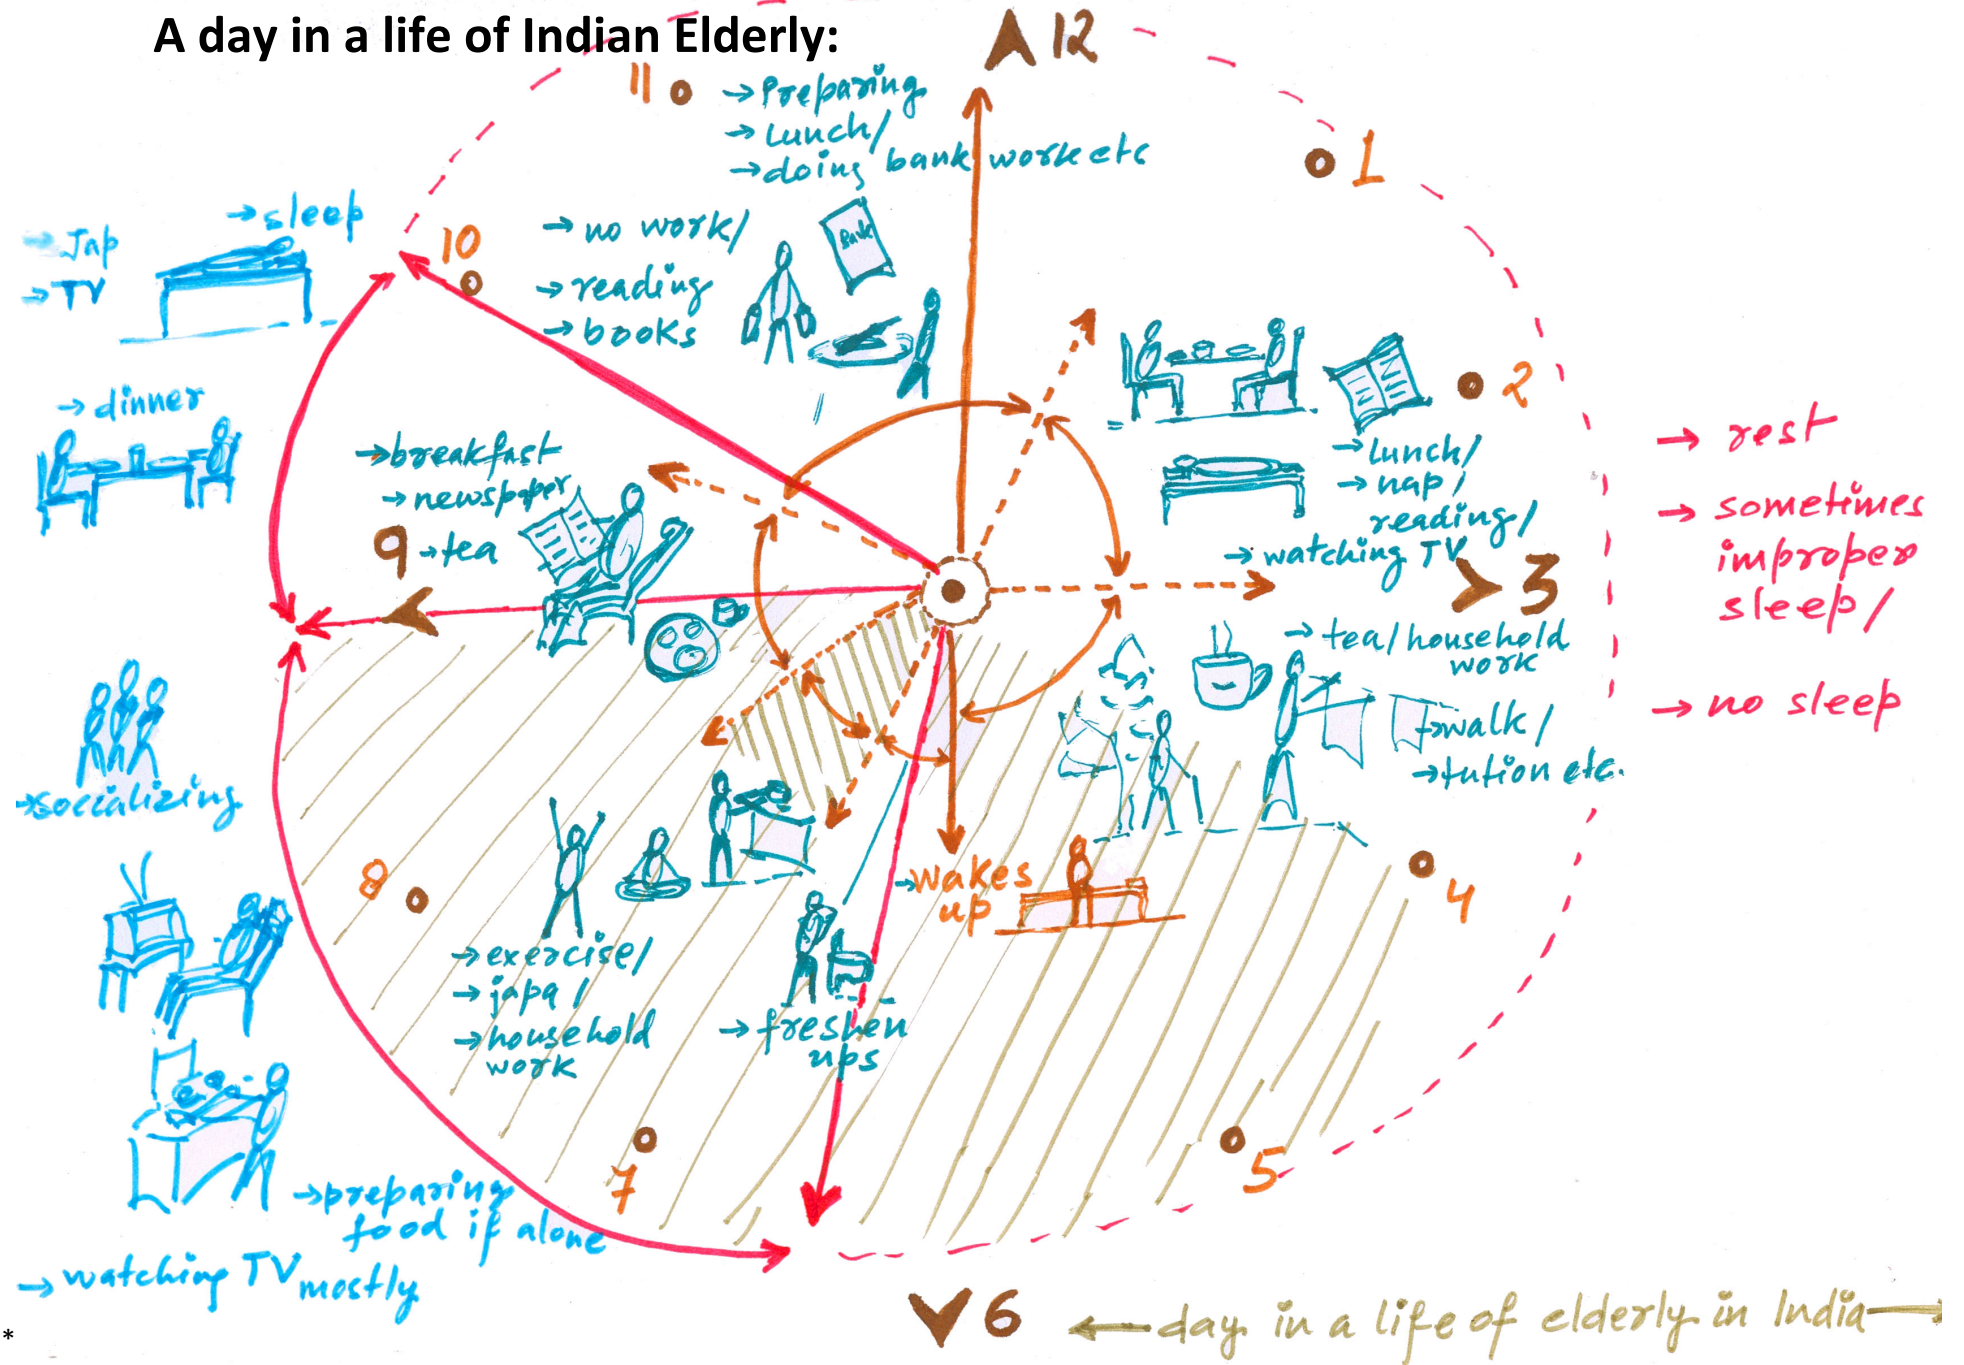 A day in a life of Indian Elderly:
12
11
→ Preparing
→ Lunch/
→ doing bank work etc
1
→ sleep
→ Jap
→ TV
10
→ no work/
→ reading
→ books
Bank
2
→ dinner
→ breakfast
→ newspaper
9 → tea
→ lunch/
→ nap/
reading/
→ watching TV
3
→ rest
→ sometimes
improper
sleep/
→ no sleep
→ tea/household
work
→ walk/
→ tution etc.
→ socializing
8
→ wakes
up
4
→ exercise/
→ japa/
→ household
work
→ freshen
ups
7
5
→ preparing
food if alone
→ watching TV mostly
6
← day in a life of elderly in India →
*